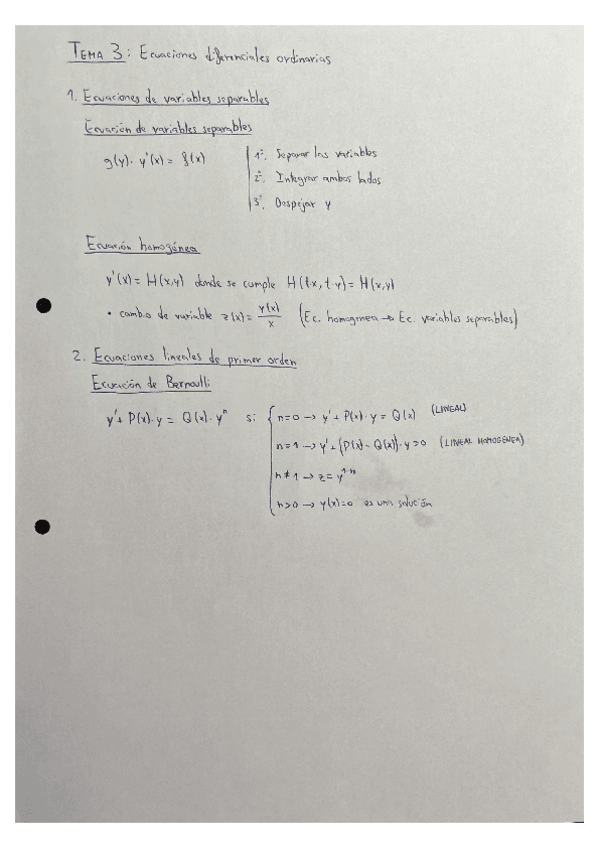 TEMA 3: Ecuaciones diferenciales ordinarias
1. Ecuaciones de variables separables
Ecuación de variables separables
g(y)· y'(x) = f(x)
1º. Separar las variables
2º. Integrar ambos lados
3º. Despejar y
Ecuación homogénea
y'(x) = H(x,y) donde se cumple H(t·x, t·y) = H(x,y)
• cambio de variable z(x) = y(x)/x (Ec. homogenea → Ec. variables separables)
2. Ecuaciones lineales de primer orden
Ecuación de Bernoulli:
y' + P(x)·y = Q(x)·y^n si
n=0 → y' + P(x)·y = Q(x) (LINEAL)
n=1 → y' + (P(x) - Q(x))·y=0 (LINEAL HOMOGENEA)
n≠1 → z = y^1-n
n>0 → y(x)=0 es una solución